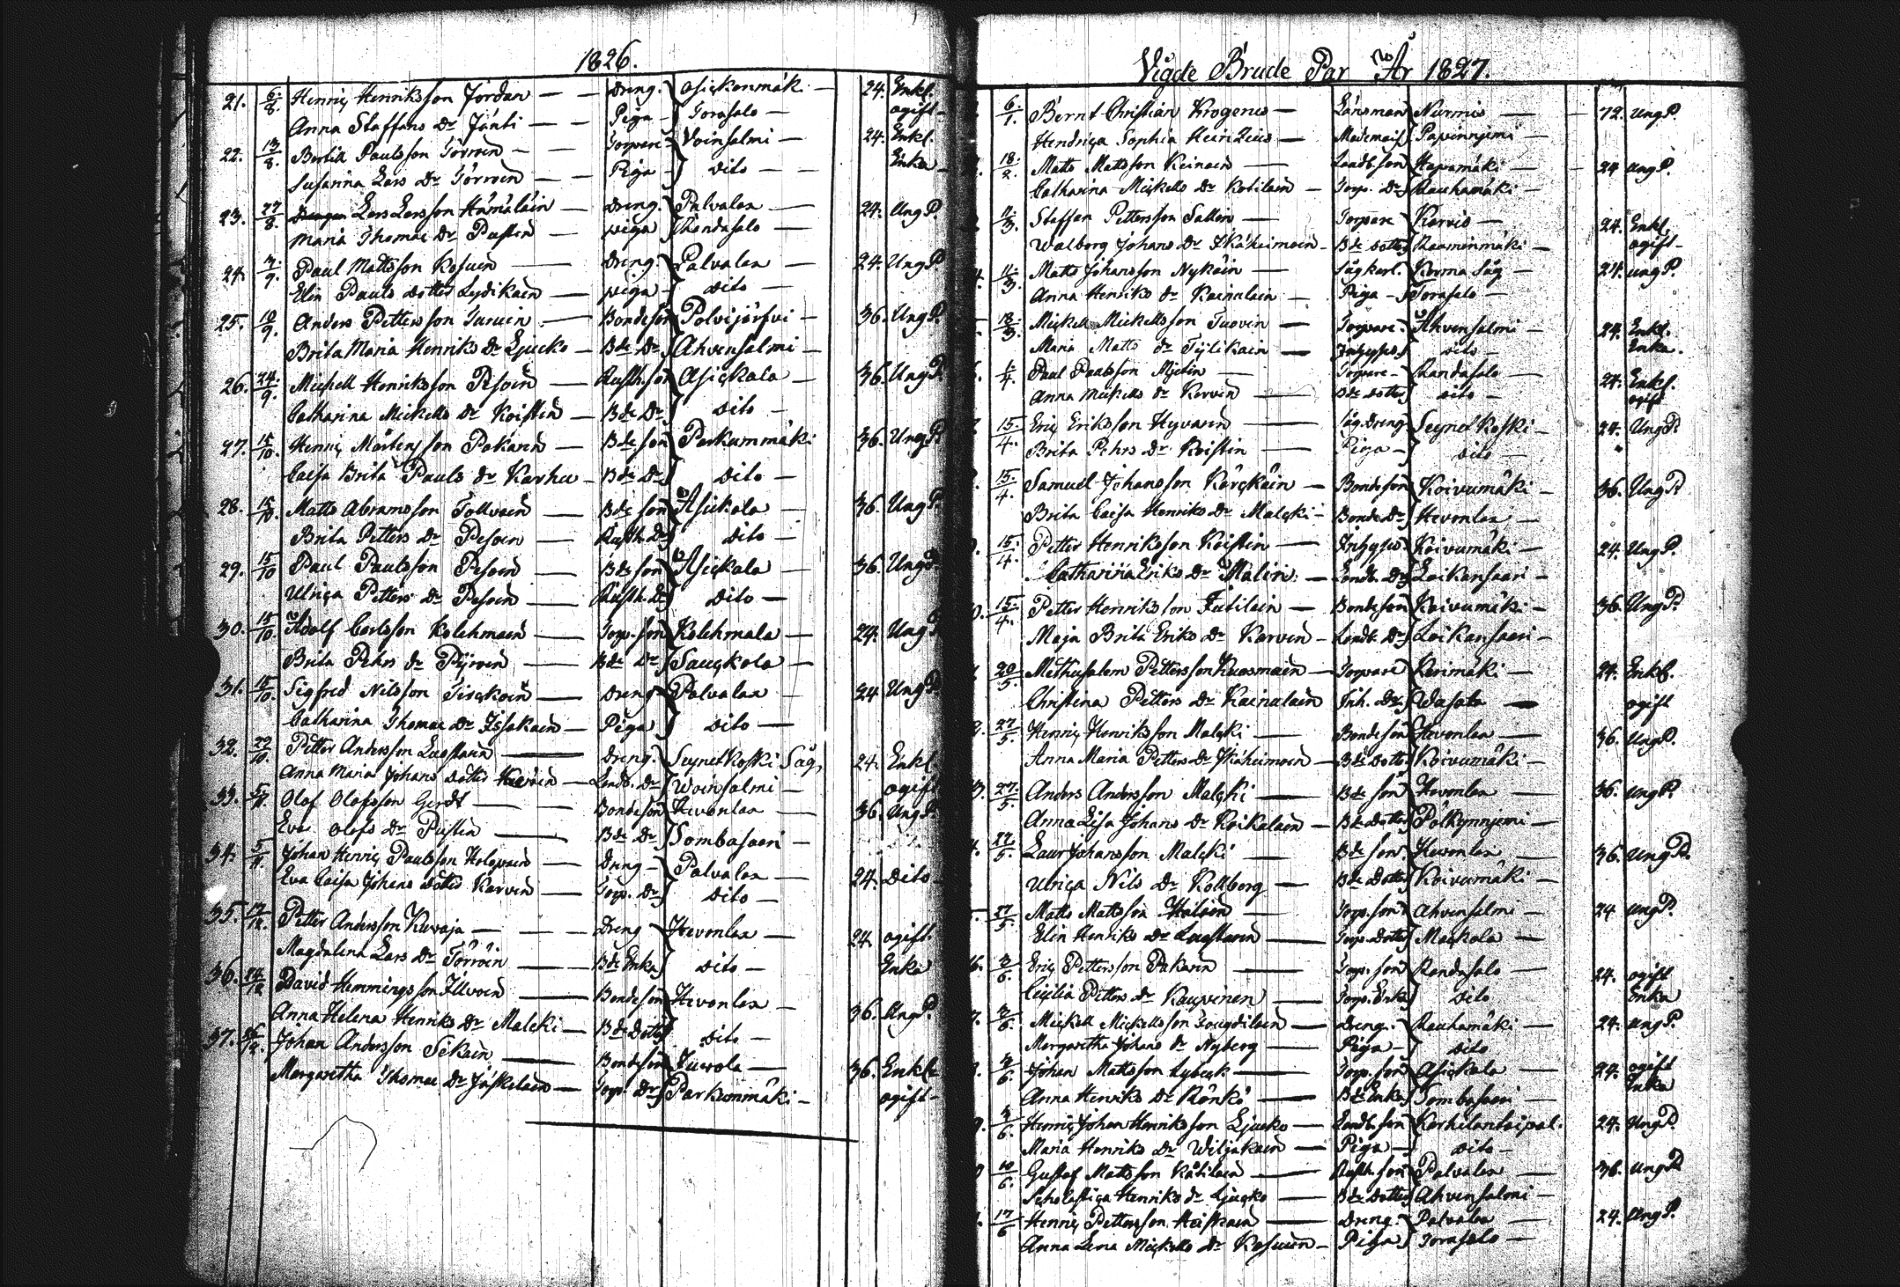 1826.
21. 6/8. Henric Henriksson Jordan — Dreng. Asickanmäk. 24. Enkl.
Anna Staffans Dr Jänti — Piga — Torasalo — ogift —
22. 13/8. Bertill Paulsson Törrönen — Torpare Voinsalmi — 24. Enkl.
Susanna Lars Dr Törrönen — Piga — Dito — Enka —
23. 27/8. Lars Larsson Hämäläin — Dreng. Palvalax — 24. Ung P.
Maria Thomae Dr — piga Randasalo —
24. Paul Mattsson Kosuen — Dreng. Palvalax — 24. Ung P
Elin Pauls Dotter Lydikain — piga — Dito —
25. 10/9. Anders Pettersson — Bondeson Polvijärfvi — 36. Ung P.
Brita Maria Henriks Dr Ljucko — Bde Dr Ahvensalmi —
26. 24/9. Michell Henriksson Pesoin — Rusth.son Asickala — 36. Ung P.
Catharina Mickells Dr Koistin — Bde Dr. Dito —
27. 15/10. Henric Mårtensson Pakarin — Bde son Parkummäki 36. Ung P.
Caisa Brita Pauls Dr Karhu — Bde Dr Dito —
28. 15/10. Matts Abramsson Tollvain — Bde son Asickala — 36. Ung P.
Brita Petters Dr Pesoin — Rusth. Dr Dito —
29. 15/10 Paul Paulsson Pesoin — Bde son Asickala — 36. Ung P.
Ulrica Petters Dr Pesoin — Rusth. Dr Dito —
30. 15/10. Adolf Carlsson Kolehmain — Torp. son Kolehmala — 24. Ung P.
Brita Pehrs Dr — Bde Dr Sauckola —
31. 15/10. Sigfred Nilsson — Dreng Palvalax — 24 Ung P.
Catharina Thomae Dr Issakain — Piga Dito —
32. 29/10. Petter Andersson Laestarin — Dreng. Seynetkoski Såg, 24. Enkl.
Anna Maria Johans Dotter — Landb. Dr Woinsalmi — ogift
33. Olof Olofsson Gerdt — Bondeson Hevonlax — 36. Ung P.
Eva Olofs Dr — Bde Dr Sombasaari —
34. 5/11. Johan Henric Paulsson Holopain — Dreng — Palvalax — 24. Dito —
Eva Caisa Johans Dotter Karvin — Torp. Dr Dito —
35. 17/12. Petter Andersson Kuvaja — Dreng Hevonlax — 24. ogift.
Magdalena Lars Dr Törröin — Bde Enka Dito — Enka
36. David Hemmingsson — Bondeson Hevonlax — 36. Ung P.
Anna Helena Henriks Dr Malcki — Bde Dotter Dito —
37. 26/12. Johan Andersson Sikain — Bondeson Juvola — 36. Enkl.
Margaretha Thomae Dr Jäskelain — Torp. Dr Parkummäki — ogift —
Vigde Brude Par År 1827.
6/1. Bernt Christian Krogerus — Länsman Nurmis — 72. Ung P.
Hendrica Sophia Heintzius — Mademois. Papinnjemi —
18/2. Matts Mattsson Keinain — Landb. son Haapamäki — 24 ung P.
Catharina Mickells Dr Kotilain — Torp. Dr Rauhamäki —
11/3. Staffan Pettersson — Torpare Kervis — 24. Enkl.
Walborg Johans Dr Ikäheimoin — Bde Dotter Raaminmäki — ogift —
11/3. Matts Johansson Nykäin — Sågkarl. Korma Såg — 24. ung P.
Anna Henriks Dr Kainulain — Piga — Torasalo —
18/3. Mickell Mickellsson Tuovin — Torpare. Ahvensalmi — 24. Enkl.
Maria Matts Dr Tijlikain — Inhyses Dito — Enka.
1/4. Paul Paulsson — Torpare — Randasalo — 24. Enkl.
Anna Mickells Dr Karvin — Bde Dotter Dito — ogift
15/4. Eric Eriksson Hyvärin — Såg.Dreng Seynetkoski — 24. Ung P.
Brita Pehrs Dr Koistin — Piga — Dito —
15/4. Samuel Johansson Kärckäin — Bondeson Koivumäki — 36. Ung P
Brita Caisa Henriks Dr Malcki — Bonde Dr Hevonlax —
15/4. Petter Henriksson Koistin — Inhyses Koivumäki — 24. Ung P.
Catharina Eriks Dr Malin — Landb. Dr Loikansaari —
15/4. Petter Henriksson Jutilain — Bondeson Koivumäki — 36. Ung P.
Maja Brita Eriks Dr Karvin — Landb. Dr Loikansaari —
20/5. Methusalem Pettersson Kuosmain — Torpare Kerimäki — 24. Enkl.
Christina Petters Dr Kainulain Inh. Dr. — ogift
27/5. Henric Henriksson Malcki — Bondeson Hevonlax — 36. Ung P.
Anna Maria Petters Dr Ikäheimoin — Bde Dotter Koivumäki —
27/5. Anders Andersson Malcki — Bde son Hevonlax — 36. ung P.
Anna Lisa Johans Dr Roikolain — Bde Dotter Pölkynnjemi —
27/5. Laur Johansson Malcki — Bde son Hevonlax — 36. Ung P.
Ulrica Nils Dr Kollborg — Bde Dotter Koivumäki —
27/5. Matts Mattsson — Torp. son Ahvensalmi — 24 ung P.
Elin Henriks Dr Laestarin — Torp. Dotter Mackola —
3/6. Eric Pettersson Pakarin — Torp. son Randasalo — 24. ogift
Cicilia Petters Dr Kaupinen — Torp. Enka Dito Enka
3/6. Mickell Mickellsson — Dreng. Rauhamäki — 24. ung P.
Margaretha Johans Dr Nyberg — Piga — Dito
3/6. Johan Mattsson Lybeck — Torp. son Asickala — 24. ogift
Anna Henriks Dr Rönkö — Bde Enka Sombasaari — Enka
3/6. Henric Johan Henriksson Ljucko — Landb. son Karhilantaipal. 24. Ung P
Maria Henriks Dr Wiljakain — Piga — Dito —
10/6. Gustaf Mattsson Kotilain — Rusth. son Palvalax — 36. ung P.
Scholastica Henriks Dr Ljucko — Bde Dotter Ahvensalmi —
17/6 Henric Pettersson Heiskain — Dreng. Palvalax — 24. ung P.
Anna Lena Mickells Dr Kosuin — Piga Torasalo —